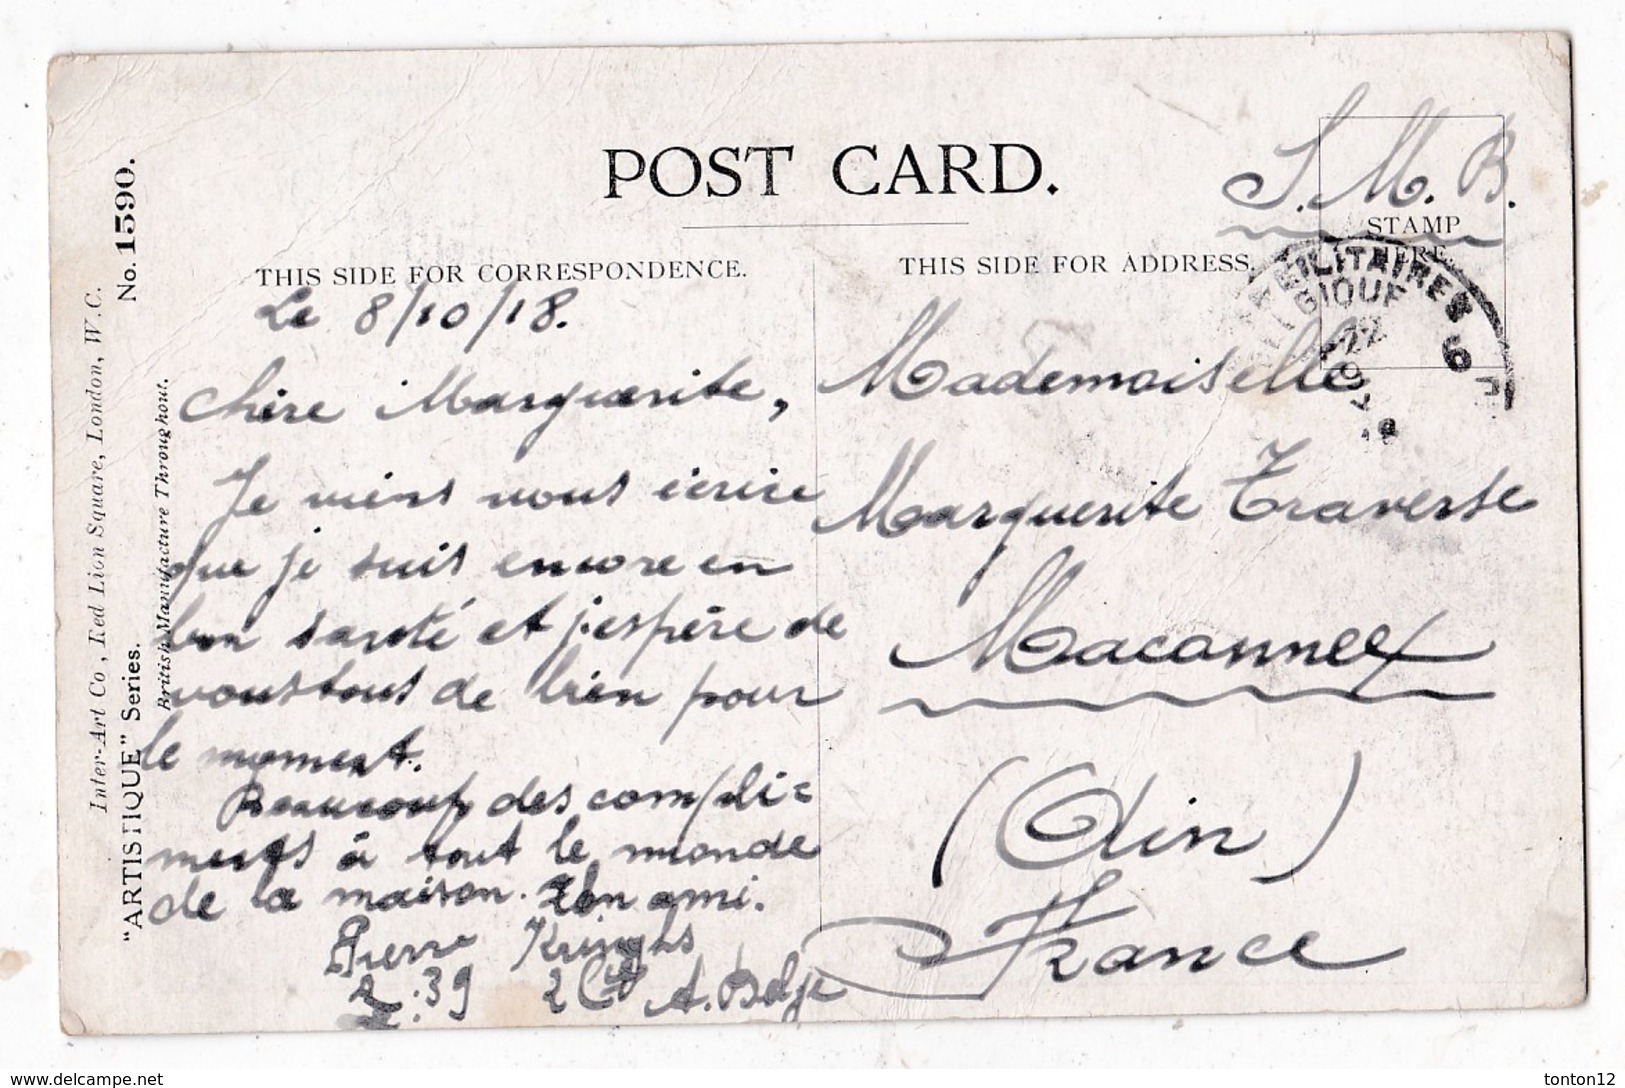 POST CARD.
S. M. B.
STAMP
HERE.
THIS SIDE FOR CORRESPONDENCE.
THIS SIDE FOR ADDRESS.
No. 1590.
Inter-Art Co, Red Lion Square, London, W.C.
"ARTISTIQUE" Series.
British Manufacture Throughout.
MILITAIRES 6
22
Le 8/10/18.
Chère Marguerite,
Je viens vous écrire
que je suis encore en
bon santé et j'espère de
vous tous de bien pour
le moment.
Beaucoup des compli=
ments à tout le monde
de la maison. Ton ami.
Pierre
Z:39 2 Cie A. Belge
Mademoiselle
Marguerite Traverse
Maconnex
(Ain)
France
www.delcampe.net
tonton12